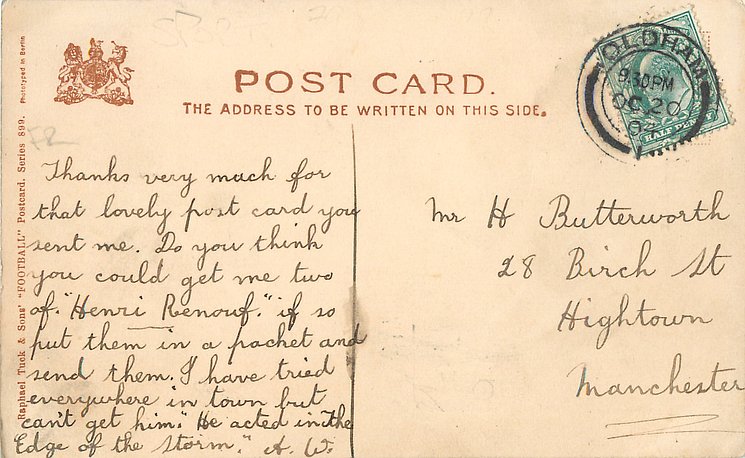 POST CARD.
THE ADDRESS TO BE WRITTEN ON THIS SIDE.
Phototyped in Berlin
Raphael Tuck & Sons' "FOOTBALL" Postcard. Series 899.
OLDHAM
9.30PM
OC 20
04
HALF PENNY
Thanks very much for
that lovely post card you
sent me. Do you think
you could get me two
of. "Henri Renouf." if so
put them in a packet and
send them. I have tried
everywhere in town but
can't get him. "He acted in the
Edge of the Storm." A. W.
Mr H Butterworth
28 Birch St
Hightown
Manchester